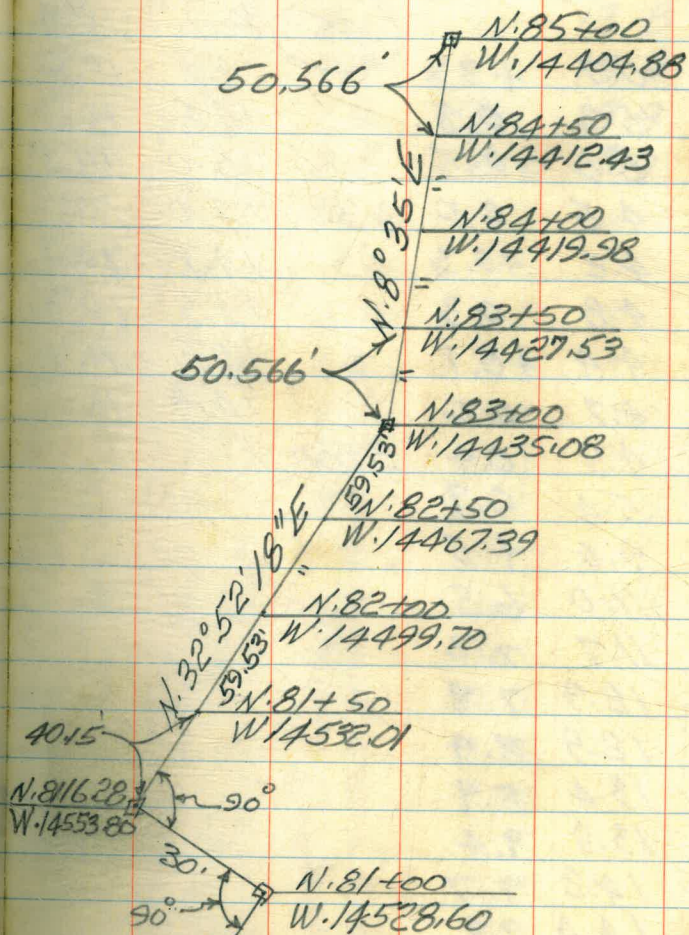 N.85+00
W.14404.88
50.566'
N.84+50
W.14412.43
"
N.8°35'E
N.84+00
W.14419.98
"
N.83+50
W.14427.53
50.566'
"
N.83+00
W.14435.08
59.53'
N.82+50
W.14467.39
N.32°52'18"E
"
N.82+00
W.14499.70
59.53'
N.81+50
W.14532.01
40.15'
N.8116.28
W.14553.80
90°
30.
N.81+00
W.14528.60
90°